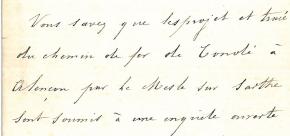 Vous savez que les projet et tracé
du chemin de fer de Condé à
Alençon par le Mesle sur Sarthe
sont soumis à une enquête ouverte